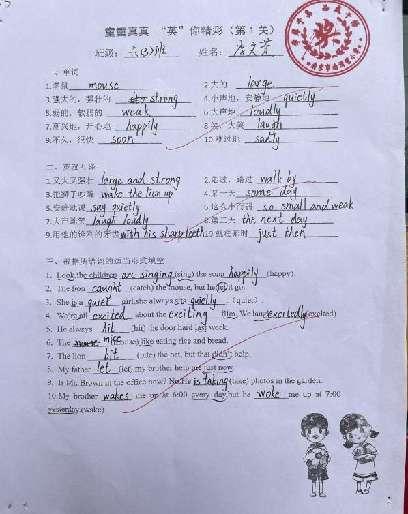 童童真真 “英”你精彩（第1关）
班级： 姓名：
一、单词
1.老鼠 mouse 2.大的 large
3.强大的，强壮的 strong 4.小声地，安静地 quickly
5. weak 6.大声地 loudly
7.高兴地，开心地 happily 8.笑，大笑 laugh
9.不久，很快 soon 10.难过地 sadly
1.又大又强壮 large and strong 2.走过，路过 walk by
3. make the lion up 4.某一天 some day
5. say quietly 6.这么小 so small and weak
7.大声 laugh loudly 8.第二天 the next day
9.用他的锋利的牙齿 with his sharp teeth 10.就在那时 just then
1. Look the children are singing (sing) the song happily (happy).
2. The lion caught (catch) the mouse, but he let it go.
3. She is a quiet girl.she always quietly (quiet)
4. We're all excited about the exciting film. We excitedly (excited)
5. He always hit (hit) the door hard last week.
6. The mice like eating rice and bread.
7. The lion bit (bite) the net, but that didn't help.
8. My father let (let) my brother just now.
9. Is Mr. Brown in the office now? No. He is taking (take) photos in the garden.
10. My brother wakes me up at 6:00 every day but he woke me up at 7:00
yesterday (wake)